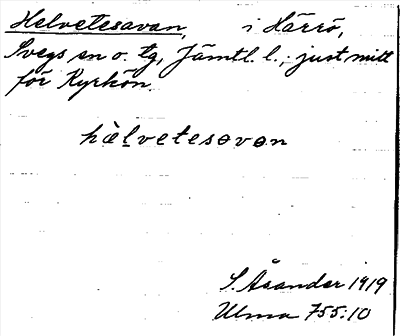 Helvetesavan, i Härrö,
Svegs sn o. tg, Jämtl. l.; just mitt
för Kyrkön.
hàlvetesavan
S. Åsander 1919
Ulma 755:10